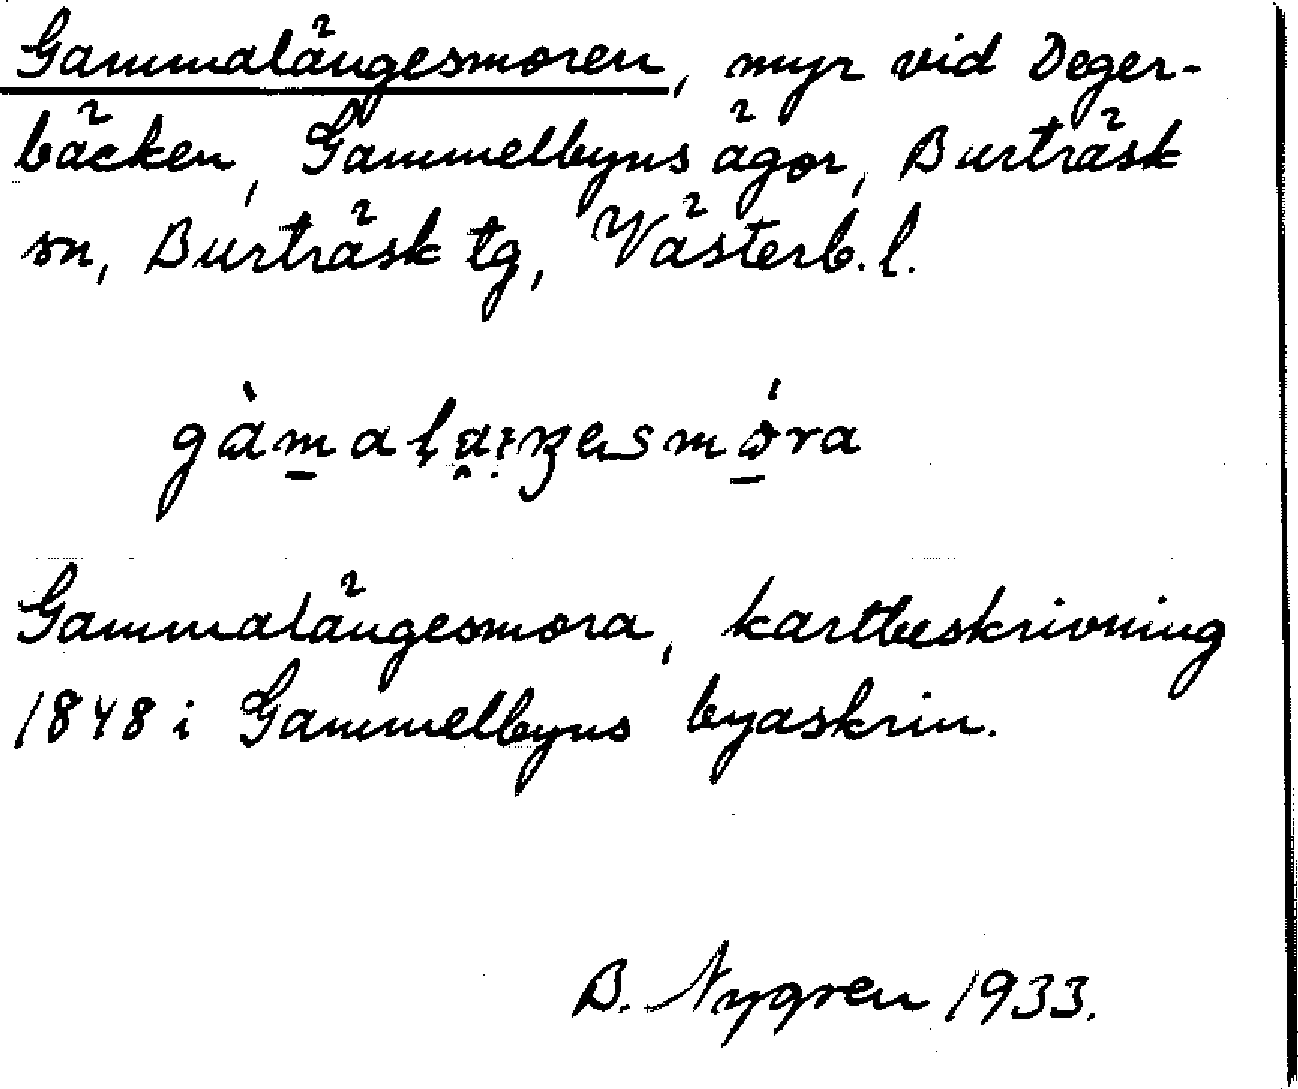 Gammalängesmoren, myr vid Deger-
bäcken, Gammelbyns ägor, Burträsk
sn, Burträsk tg, Västerb. l.
Gammalängesmora, kartbeskrivning
1848 i Gammelbyns byaskrin.
B. Nygren 1933.